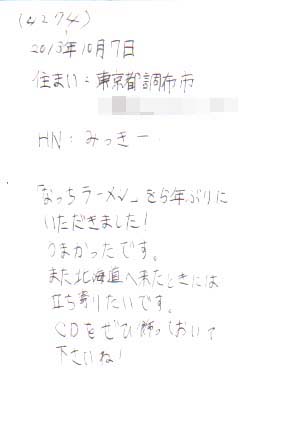 (4274)
2013年10月7日
住まい:東京都調布市
HN:みっきー
「なっちラーメン」を5年ぶりに
いただきました!
うまかったです。
また北海道へ来たときには
立ち寄りたいです。
CDをぜひ飾っておいて
下さいね!